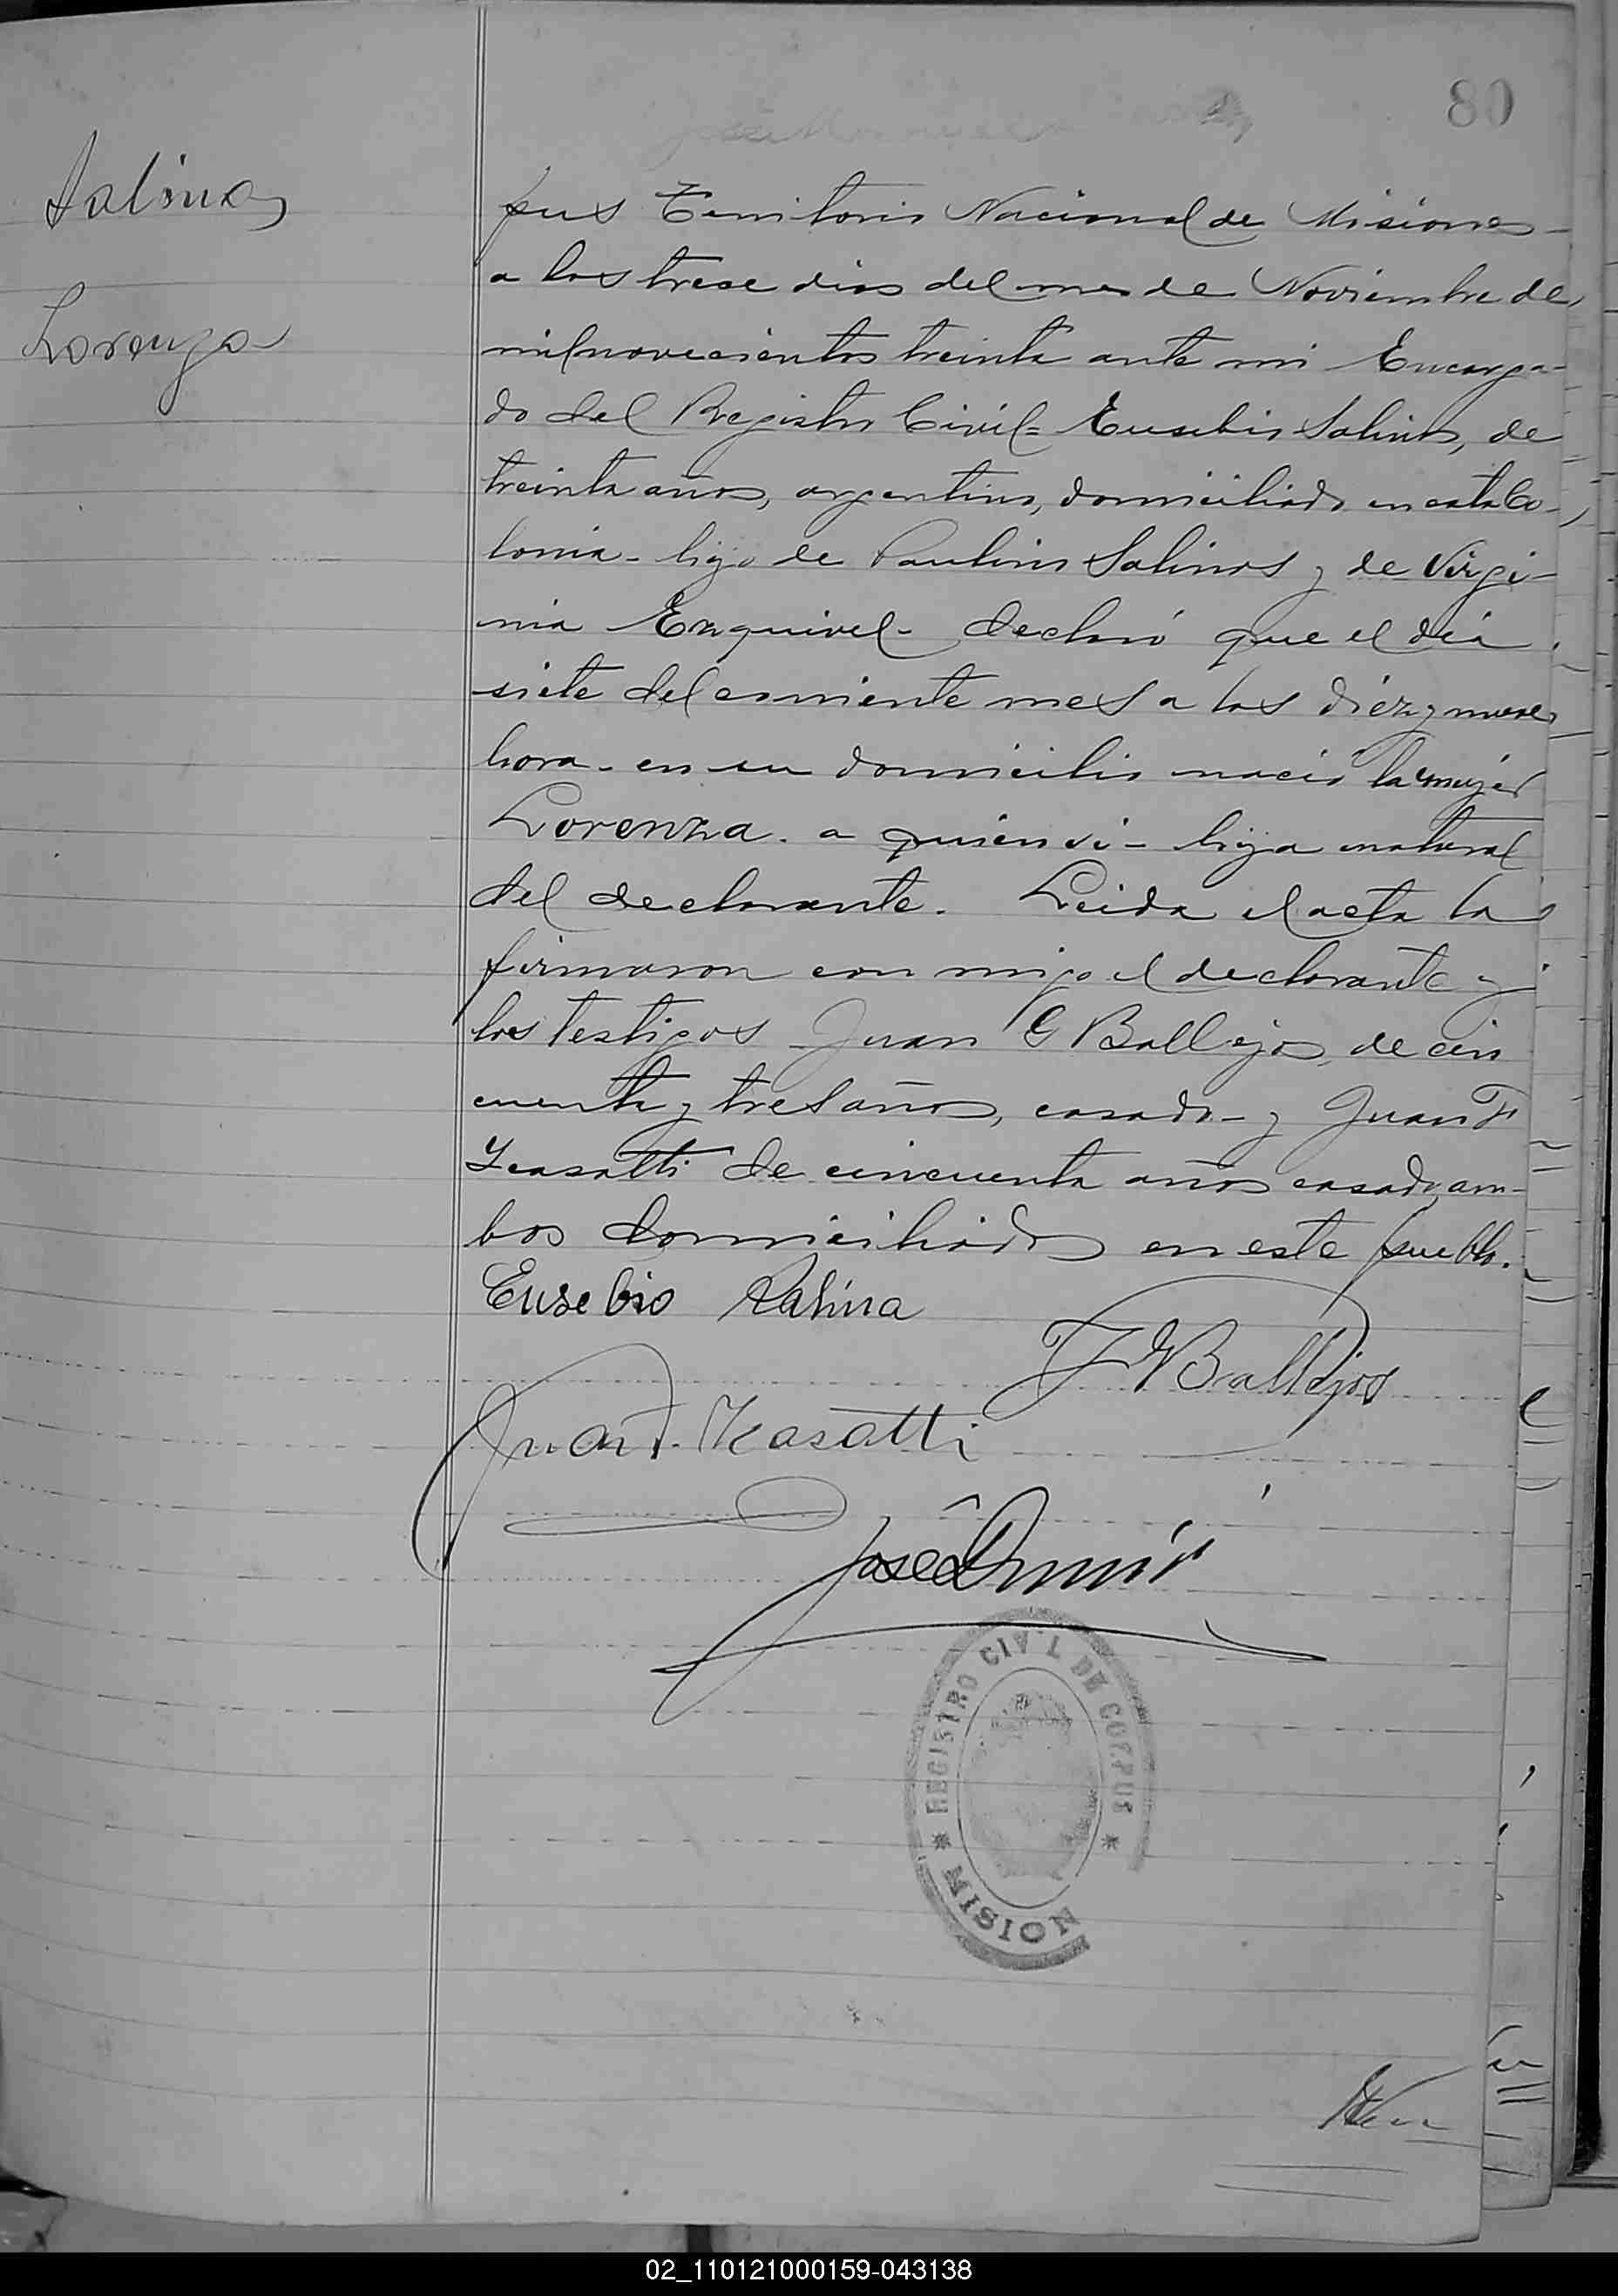 80
Salinas
Lorenza
pus Territorio Nacional de Misiones -
a los trece dias del mes de Noviembre de
mil novecientos treinta ante mi Encarga-
do del Registro Civil = Eusebio Salinas, de
treinta años, argentino, domiciliado en esta Co-
lonia - hijo de Paulino Salinas y de Virgi-
nia Ezquivel - declaró que el dia
siete del corriente mes a las diez y nueve
hora - en su domicilio nació la mujer
Lorenza. a quien vi - hija natural
del declarante. Leida el acta la
firmaron con migo el declarante y
los testigos Juan G Ballejos, de cin
cuenta y tres años, casado - y Juan F
Icasatti de cincuenta años casado, am-
bos domiciliados en este pueblo.
Eusebio Salina
J G Ballejos
Juan F. Icasatti
José
REGISTRO CIVIL DE CORPUS
* MISION *
02_110121000159-043138